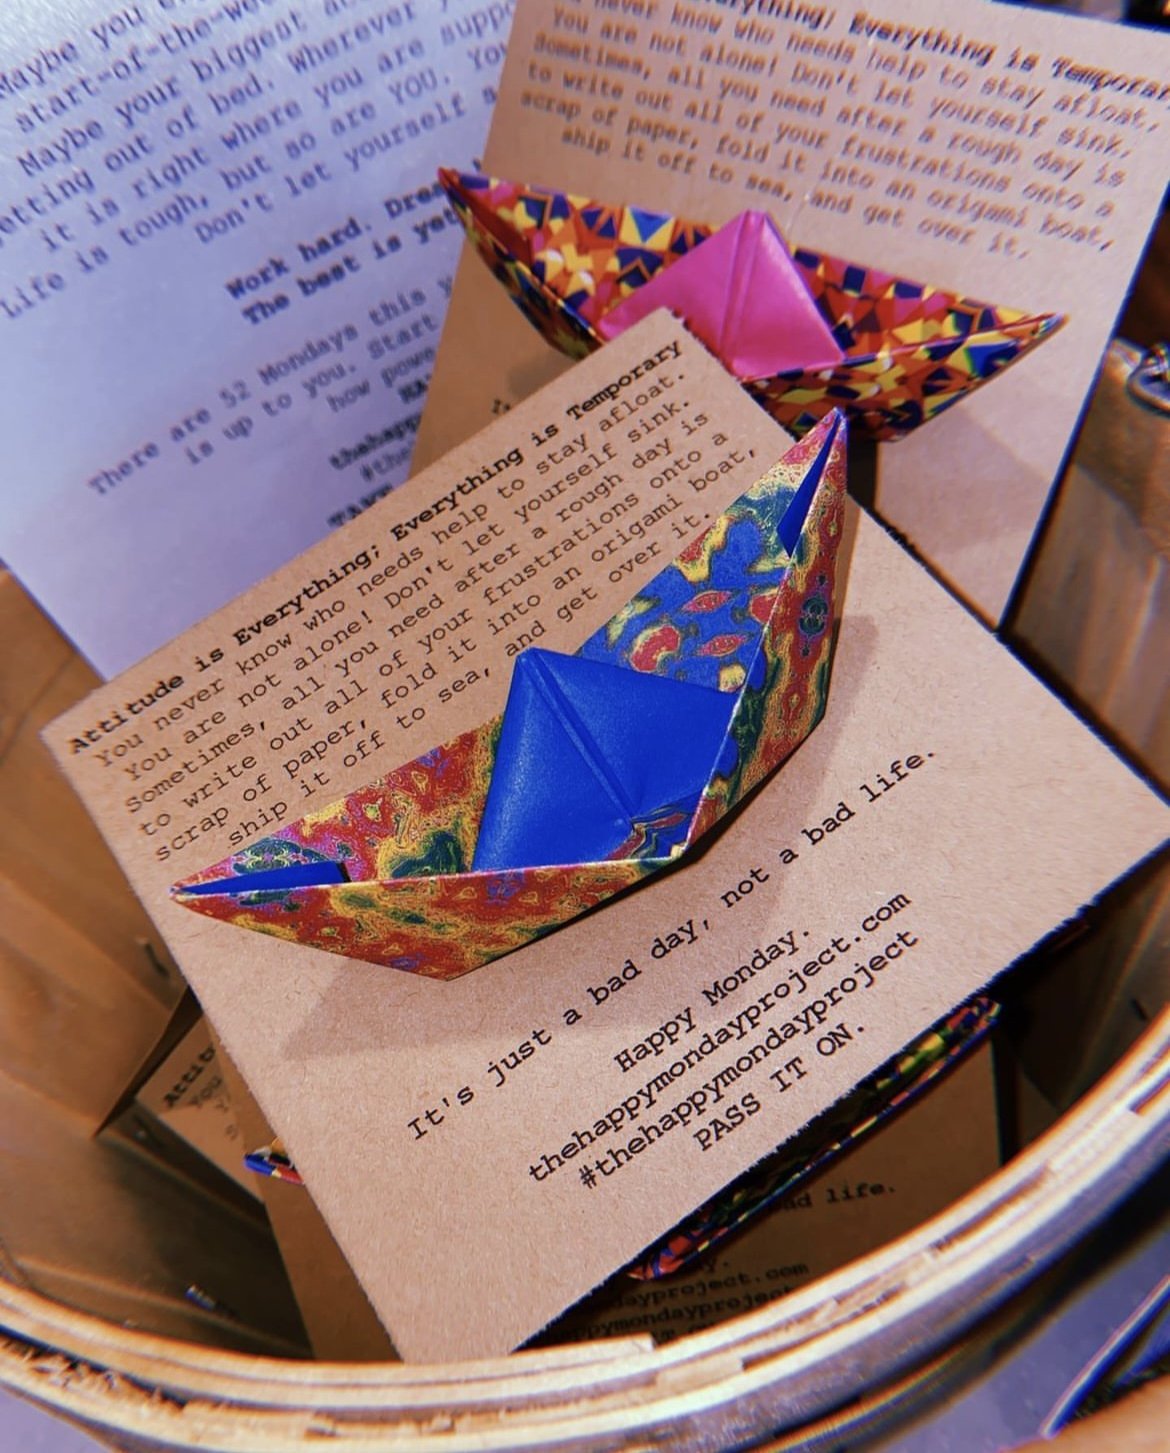 Maybe you
start-of-the-we
Maybe your biggest
getting out of bed. Wherever
it is right where you are supp
Life is tough, but so are YOU. You
Don't let yourself
Work hard. Drea
The best is yet
There are 52 Mondays this y
is up to you. Start
how powe
thehapp
#the
Everything; Everything is Temporar
never know who needs help to stay afloat,
you are not alone! Don't let yourself sink.
Sometimes, all you need after a rough day is
to write out all of your frustrations onto a
scrap of paper, fold it into an origami boat,
ship it off to sea, and get over it.
Attitude is Everything; Everything is Temporary
You never know who needs help to stay afloat.
You are not alone! Don't let yourself sink.
Sometimes, all you need after a rough day is
to write out all of your frustrations onto a
scrap of paper, fold it into an origami boat,
ship it off to sea, and get over it.
It's just a bad day, not a bad life.
Happy Monday.
thehappymondayproject.com
#thehappymondayproject
PASS IT ON.
Attit
You
bad life.
y.
dayproject.com
appymondayproject